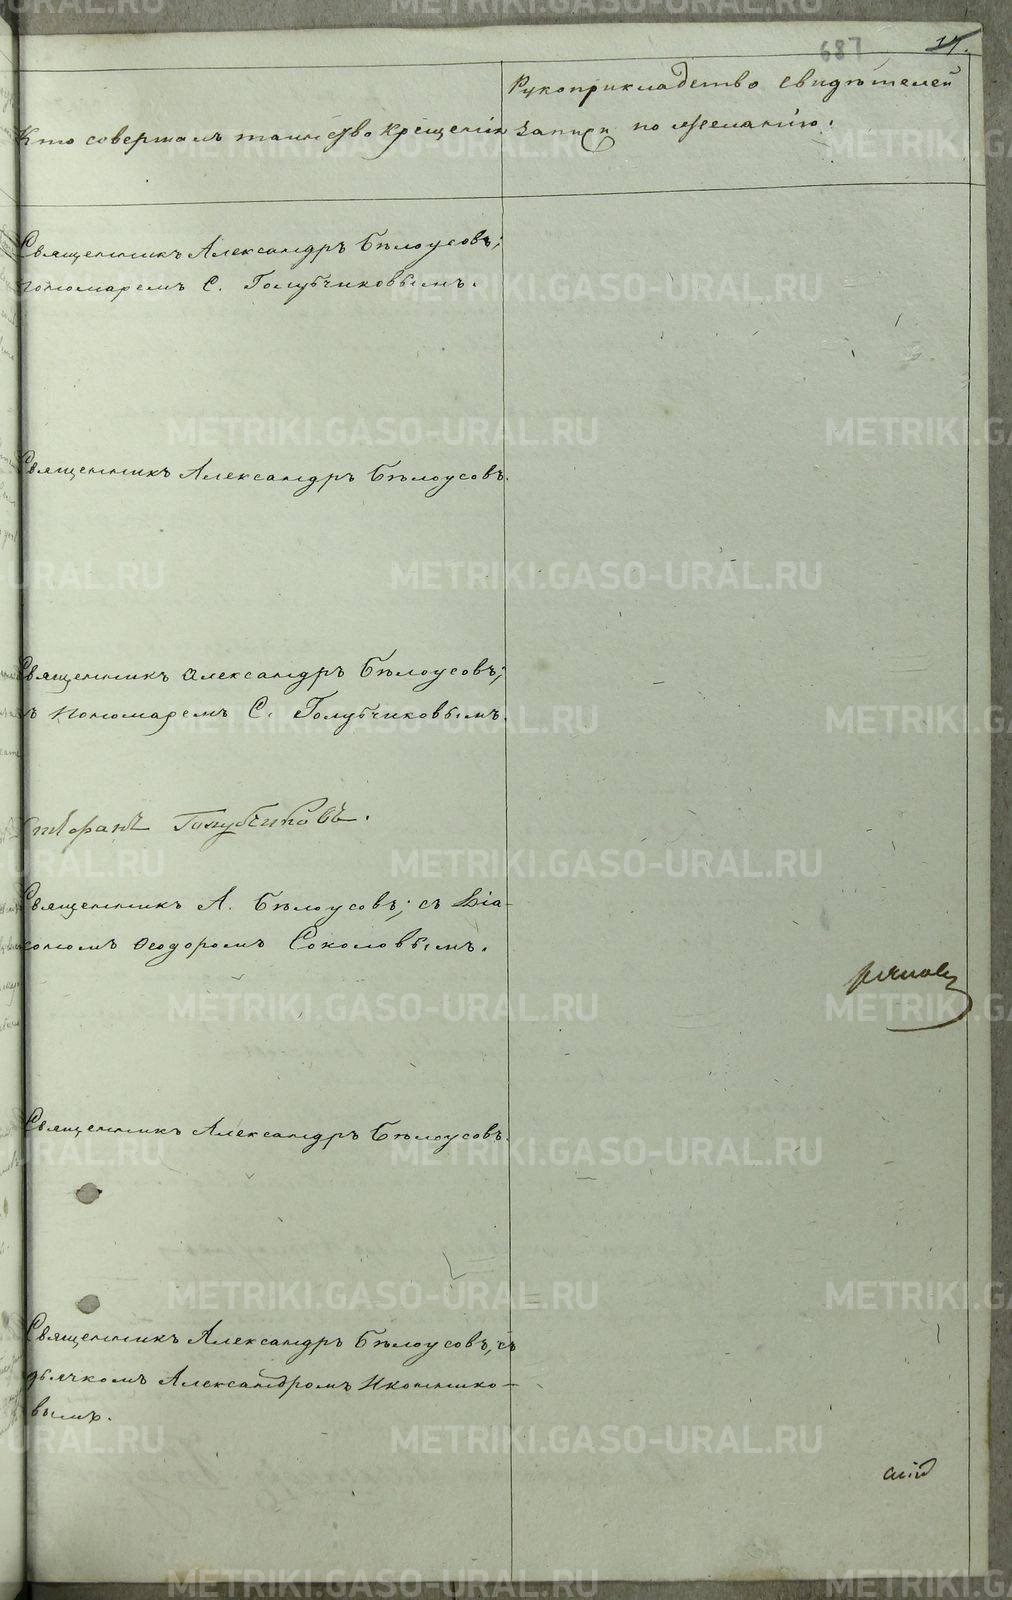 687
17.
Рукоприкладство свидѣтелей
Кто совершалъ таинство крещенія записи по желанію.
Священникъ Александръ Бѣлоусовъ;
пономаремъ С. Голубчиковымъ.
Священникъ Александръ Бѣлоусовъ.
Священникъ Александръ Бѣлоусовъ;
съ пономаремъ С. Голубчиковымъ.
Стефанъ Голубчиковъ.
Священникъ А. Бѣлоусовъ; съ Діа-
кономъ Ѳеодоромъ Соколовымъ.
Священникъ Александръ Бѣлоусовъ.
Священникъ Александръ Бѣлоусовъ, съ
дьячкомъ Александромъ Иконнико-
вымъ.
METRIKI.GASO-URAL.RU